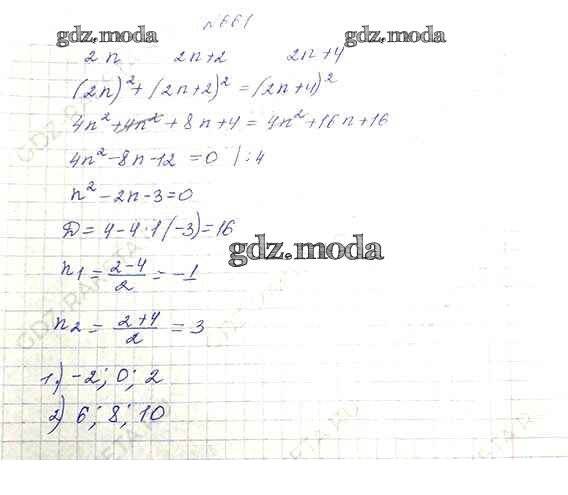 №661
gdz.moda gdz.moda
2n 2n+2 2n+4
(2n)²+(2n+2)²=(2n+4)²
4n²+4n²+8n+4=4n²+16n+16
4n²-8n-12=0 |:4
n²-2n-3=0
D=4-4·1(-3)=16
gdz.moda
n1=\frac{2-4}{2}=-1
n2=\frac{2+4}{2}=3
1) -2; 0; 2
2) 6; 8; 10